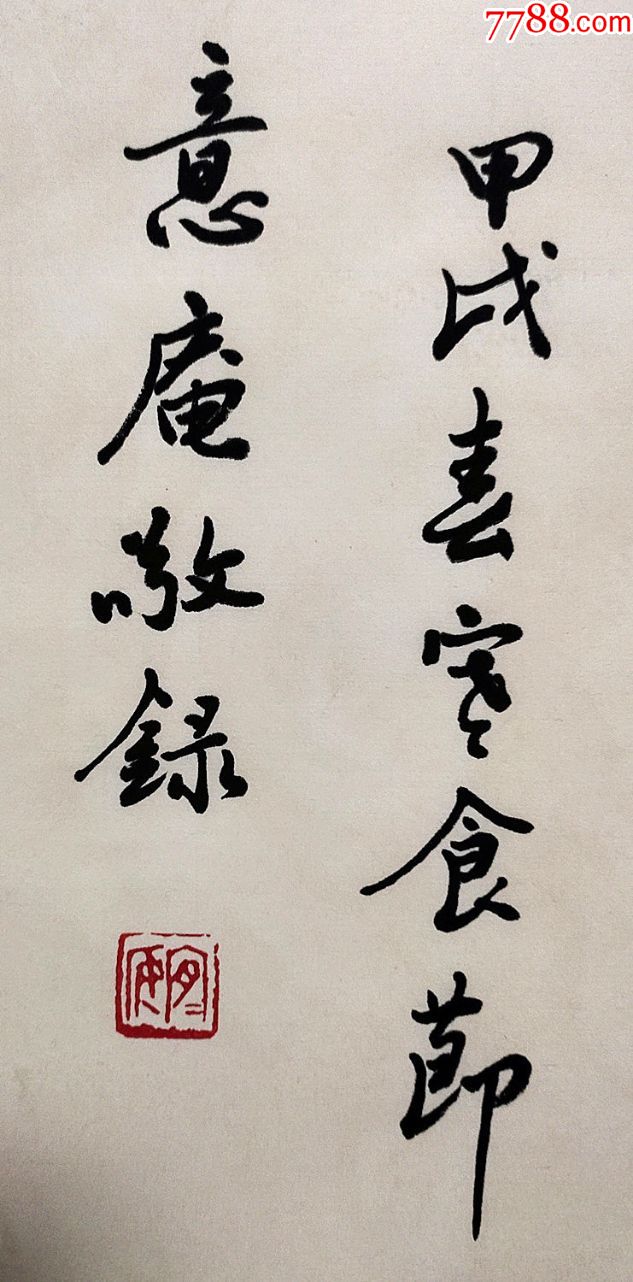 7788.com
甲戌春寒食節
意庵敬録